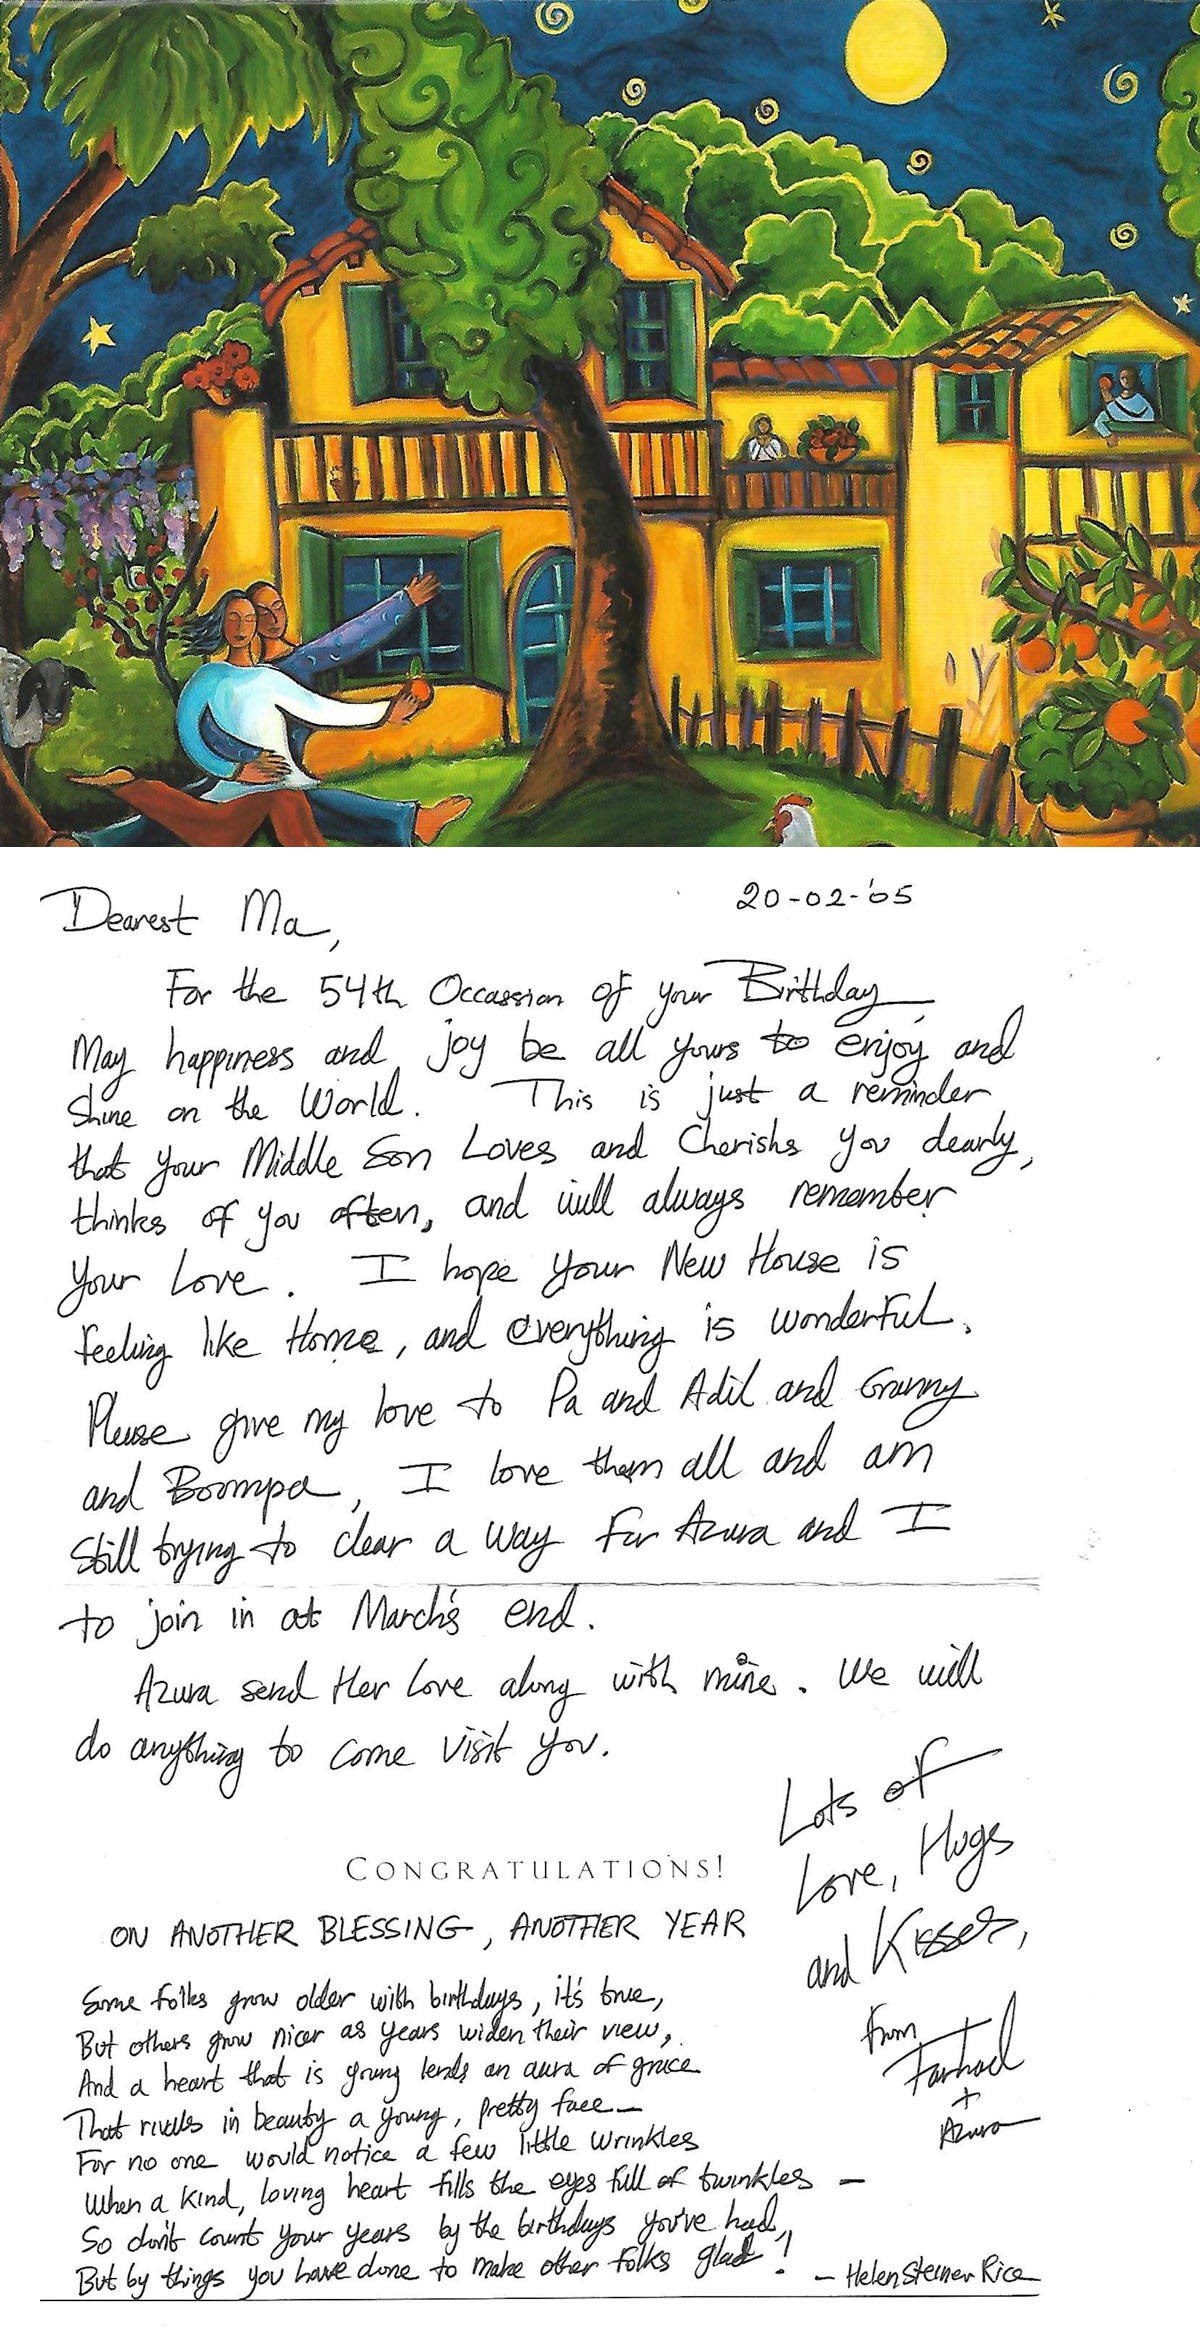 Dearest Ma,
20-02-'05
For the 54th Occassion of your Birthday,
May happiness and joy be all yours to enjoy and
Shine on the World. This is just a reminder
that your Middle Son Loves and Cherishs you dearly,
thinks of you often, and will always remember
your Love. I hope your New House is
feeling like Home, and everything is wonderful.
Please give my love to Pa and Adil and Granny
and Boompa, I love them all and am
Still trying to clear a way for Azura and I
to join in at March's end.
Azura send Her Love along with mine. We will
do anything to come visit you.
Lots of
Love, Hugs
and Kisses,
from
Farhad
+
Azura
CONGRATULATIONS!
ON ANOTHER BLESSING, ANOTHER YEAR
Some folks grow older with birthdays, it's true,
But others grow nicer as years widen their view,
And a heart that is young lends an aura of grace
That rivals in beauty a young, pretty face—
For no one would notice a few little wrinkles
When a kind, loving heart fills the eyes full of twinkles —
So don't count your years by the birthdays you've had,
But by things you have done to make other folks glad!
— Helen Steiner Rice